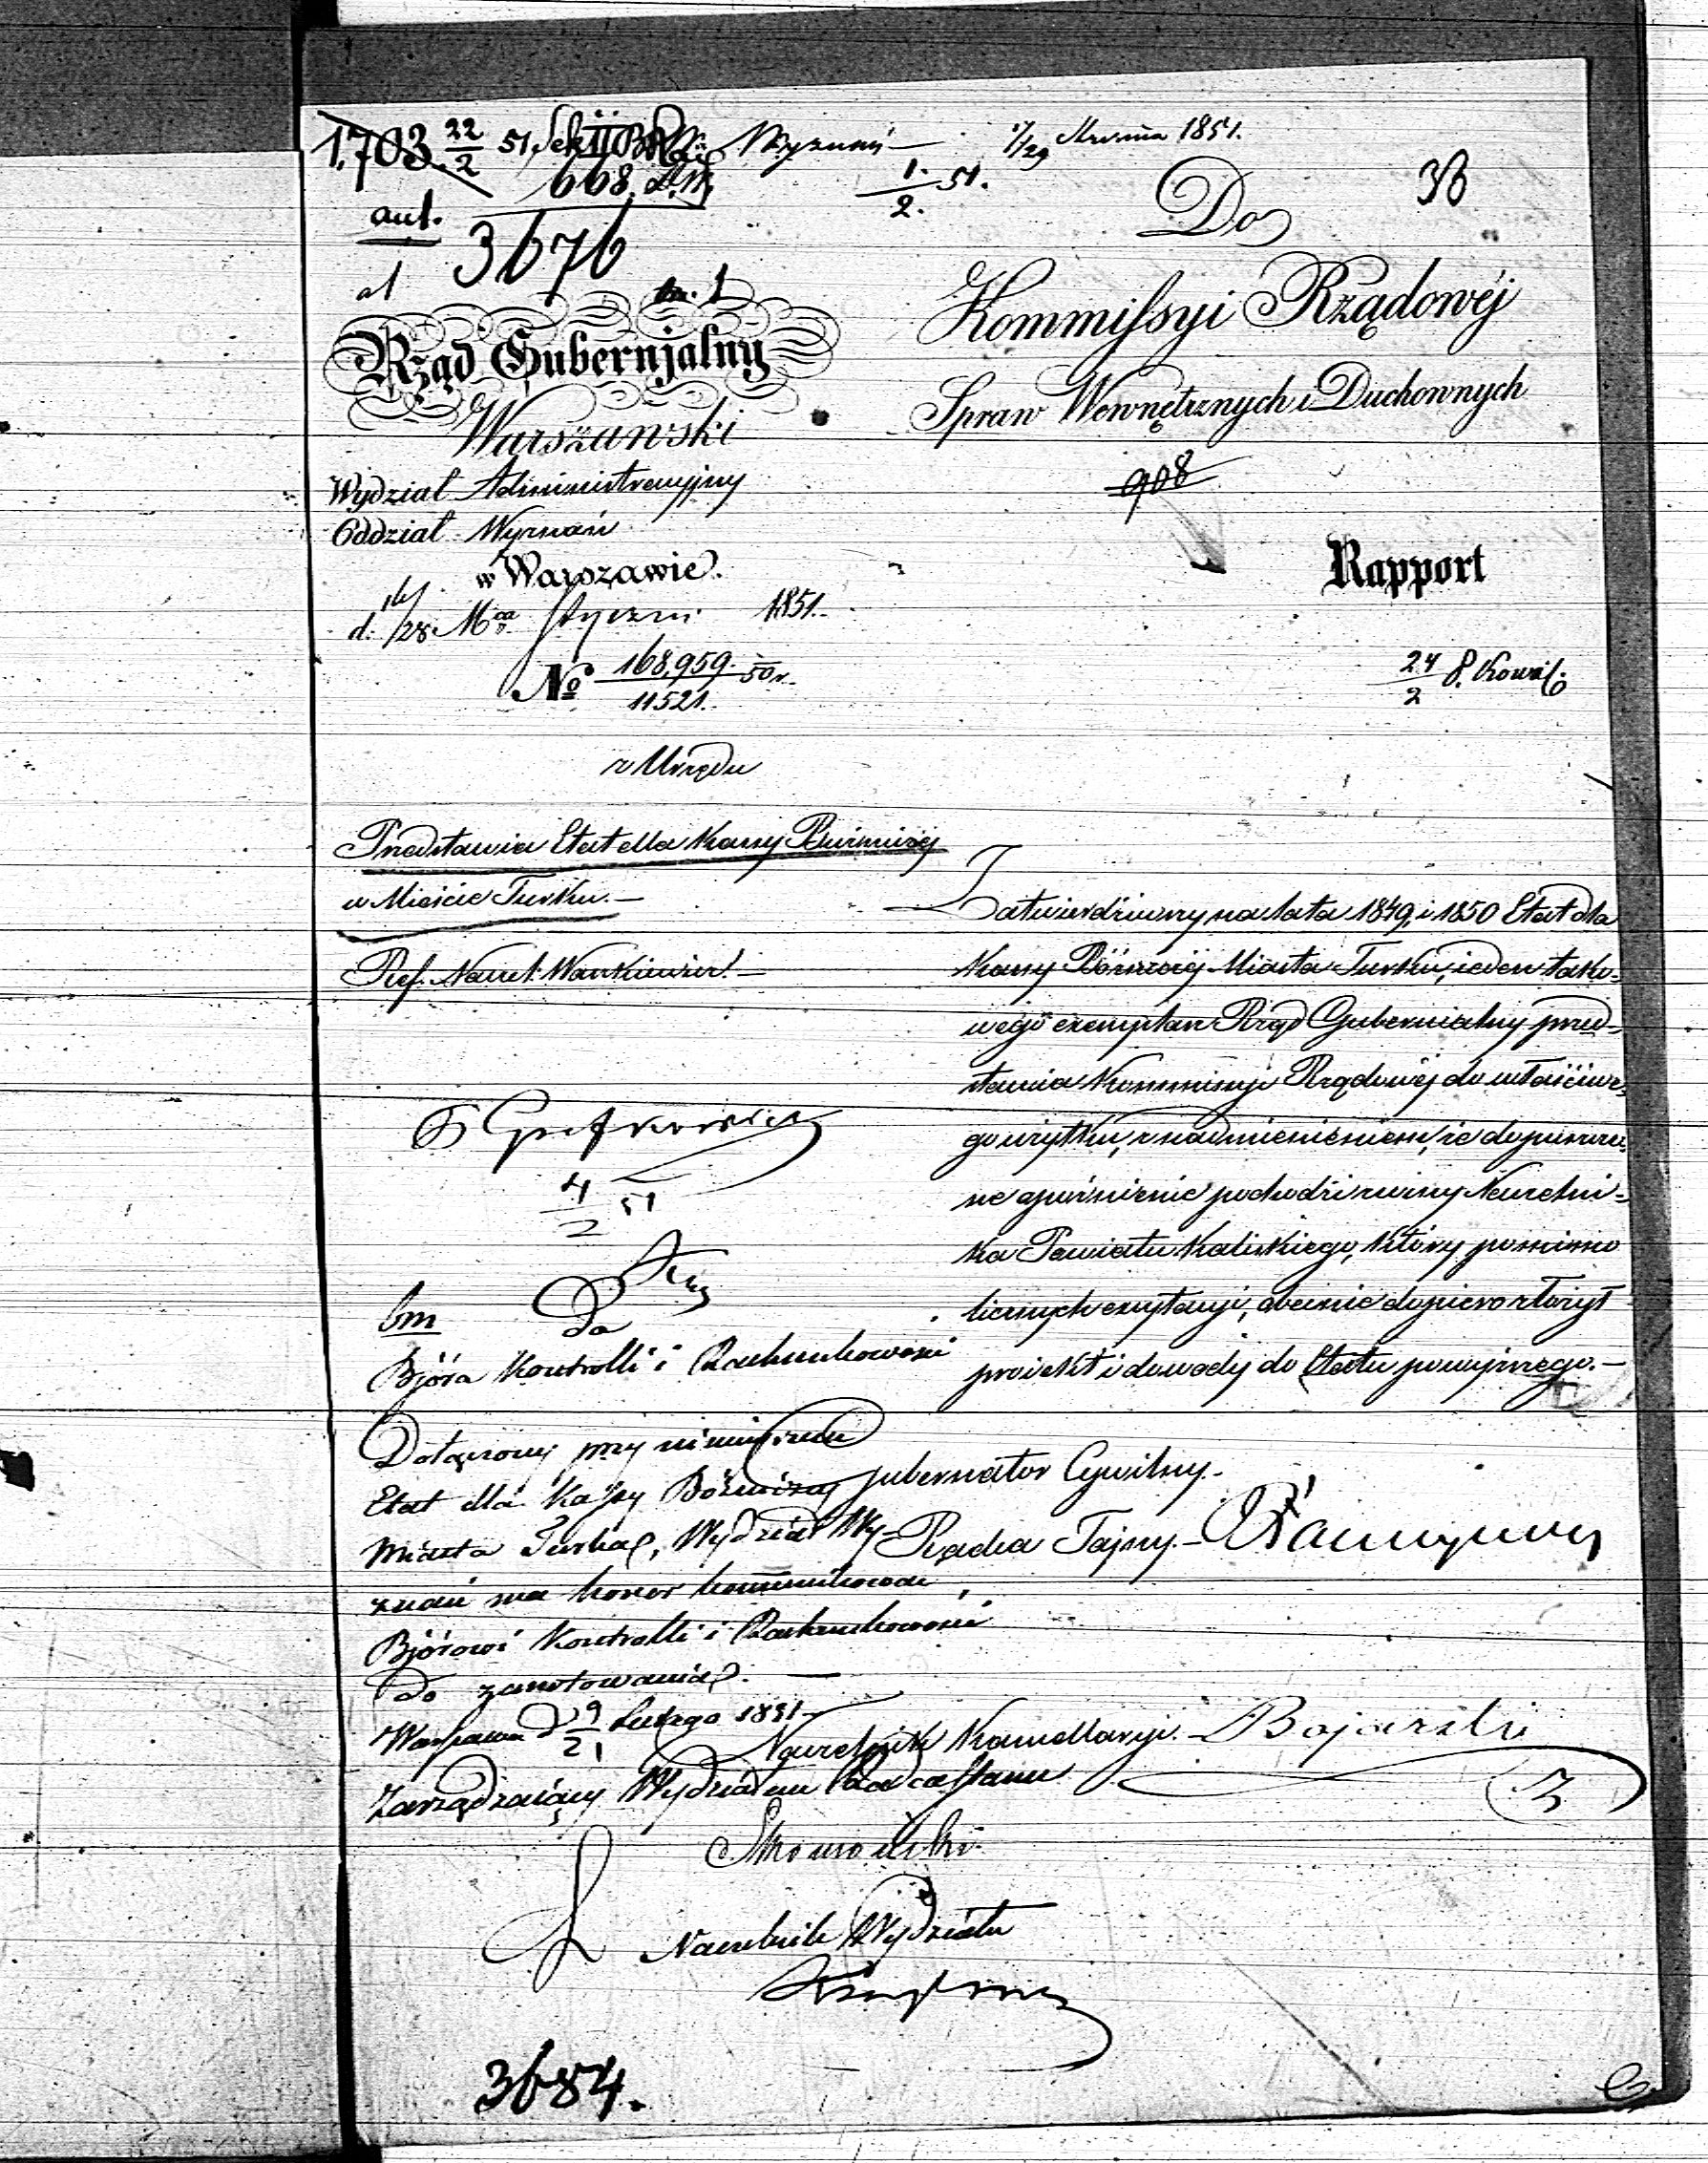 1,703. 22/2 51 Sek II
668.
Wyznań —
1./2. 51.
17/29 1851.
aut.
3676
38
Do
Kommissyi Rządowéj
Spraw Wewnętrznych i Duchownych
908
Rząd Gubernjalny
Warszawski
Wydział Administracyjny
Oddział Wyznań
w Warszawie.
d. 16/28 Mca Styczni 1851.
№ 168,959./11521. 50 r.
z Urzędu
Rapport
24/2
Przedstawia Etat dla Kassy Bóżniczej
w Mieście Turku. —
Ref. Naczel. Wankiewicz. —
Zatwierdziwszy na lata 1849, i 1850 Etat dla
Kassy Bóżniczéj Miasta Turku, ieden tako-
wego exemplarz Rząd Gubernialny przed-
stawia Kommissyi Rządowéj do właściwe-
go użytku, z nadmienieniem, że dopuszczo-
ne opóźnienie pochodzi z winy Naczelni-
ka Powiatu Kaliskiego, który pomimo
licznych excytacyi, obecnie dopiero złożył
proiekt i dowody do Etatu powyższego. —
4/2 51
bm
Do
Bjóra Kontrolli i Rachunkowości
Dołączony przy niniejszem
Etat dla Kassy Bóżniczej
Miasta Turka, Wydział Wy-
znań ma honor kommunikować
Bjórowi Kontrolli i Rachunkowości
do zanotowania. —
Warszawa d 9/21 Lutego 1851
Zarządzaiący Wydziałem Radca Stanu
Gubernator Cywilny. —
Radca Tajny. —
Naczelnik Kancellaryi. — Bojarski
Naczelnik Wydziału
3684.